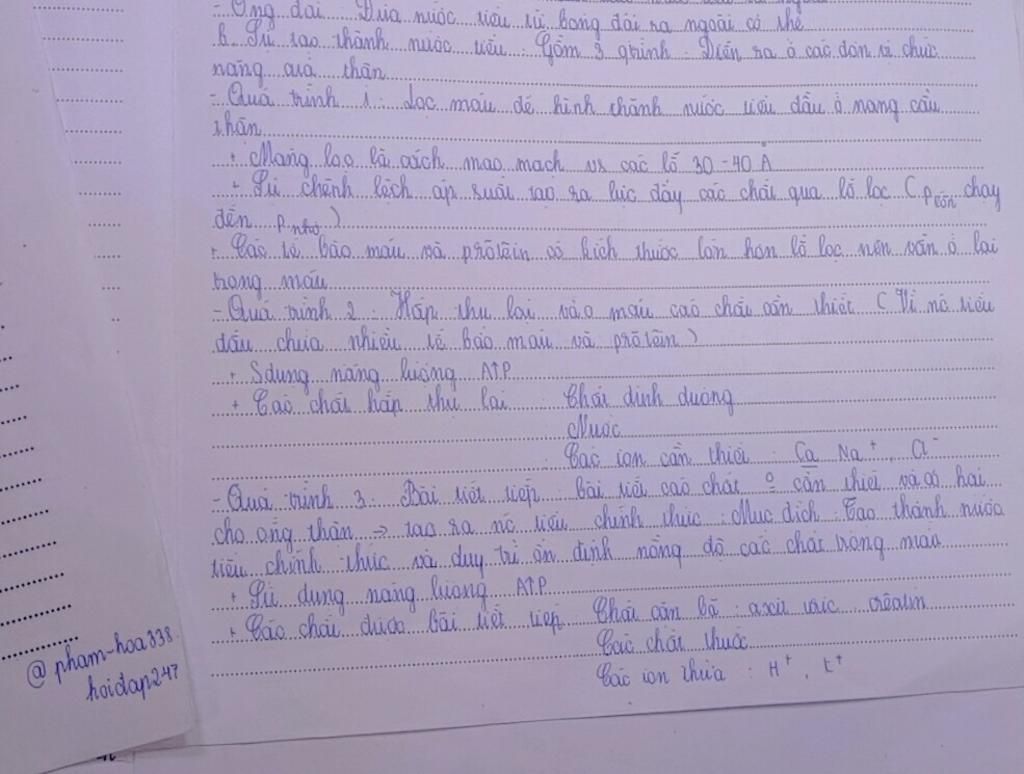 - Ống đái : Đưa nước tiểu từ bóng đái ra ngoài cơ thể
b. Sự tạo thành nước tiểu : Gồm 3 qtrình . Diễn ra ở các đơn vị chức
năng của thận
- Quá trình 1 : Lọc máu để hình thành nước tiểu đầu ở nang cầu
thận
+ Màng lọc là vách mao mạch vs các lỗ 30 - 40 Å
+ Sự chênh lệch áp suất tạo ra lực đẩy các chất qua lỗ lọc ( P lớn chạy
đến P nhỏ )
+ Các tế bào máu và prôtêin có kích thước lớn hơn lỗ lọc nên vẫn ở lại
trong máu
- Quá trình 2 : Hấp thụ lại vào máu các chất cần thiết ( Vì nc tiểu
đầu chứa nhiều tế bào máu và prôtêin )
+ Sdụng năng lượng ATP
+ Các chất hấp thụ lại : Chất dinh dưỡng
Nước
Các ion cần thiết : Ca Na⁺, Cl⁻
- Quá trình 3 : Bài tiết tiếp : bài tiết các chất cần thiết và có hại
cho ống thận => tạo ra nc tiểu chính thức . Mục đích : Tạo thành nước
tiểu chính thức và duy trì ổn định nồng độ các chất trong máu
+ Sử dụng năng lượng ATP
+ Các chất được bài tiết tiếp : Chất cặn bã : axit uric, crêatin
Các chất thuốc
Các ion thừa : H⁺, K⁺
@pham-hoa338
hoidap247